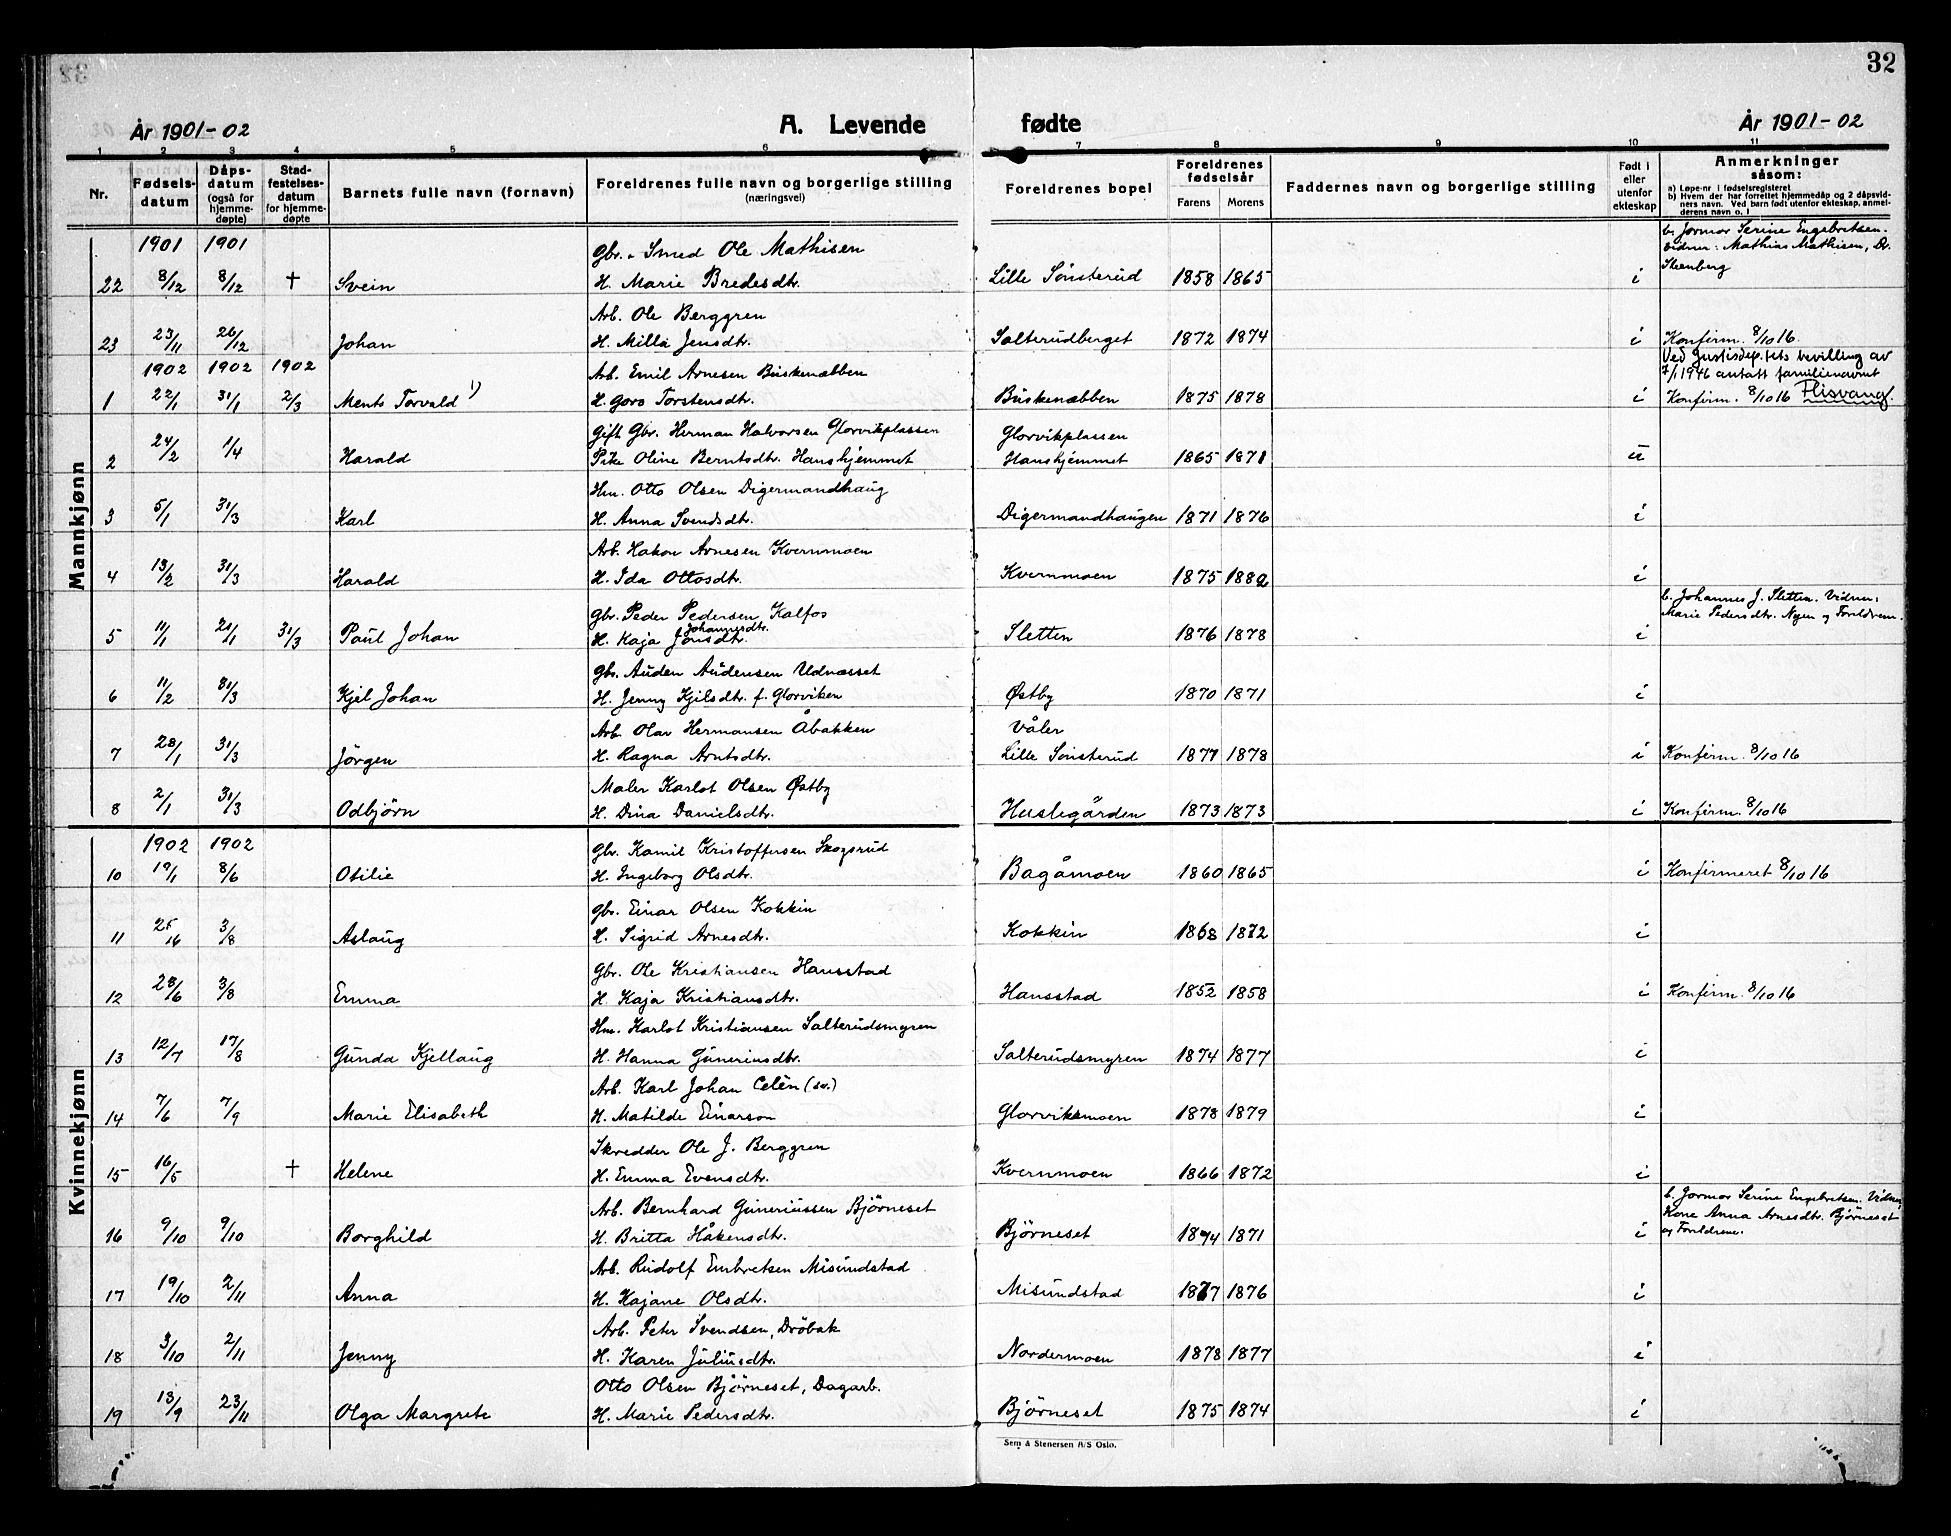 32
År 1901-02 A. Levende fødte År 1901-02
1 2 3 4 5 6 7 8 9 10 11
Nr. Fødselsdatum Dåpsdatum (også for hjemmedøpte) Stadfestelsesdatum for hjemmedøpte Barnets fulle navn (fornavn) Foreldrenes fulle navn og borgerlige stilling (næringsvei) Foreldrenes bopel Foreldrenes fødselsår Farens Morens Faddernes navn og borgerlige stilling Født i eller utenfor ekteskap Anmerkninger såsom:
a) Løpe-nr i fødselsregisteret
b) Hvem der har forrettet hjemmedåp og 2 dåpsvidners navn. Ved barn født utenfor ekteskap, anmelderens navn o. l
Mannkjønn
1901 1901 Gbr. Smed Ole Mathisen b. Jormor Serine Engebretsen.
Vidner: Mathias Mathisen, Dr.
Steenberg
22 8/12 8/12 † Svein H. Marie Bredesdtr. Lille Sönsterud 1858 1865 i
Arb. Ole Berggren
23 23/11 26/12 Johan H. Milla Jensdtr. Salterudberget 1872 1874 i Konfirm. 8/10 16
1902 1902 1902 Arb. Emil Arnesen Buskenæbben Ved Justisdep.tets bevilling av
7/1 1946 antatt familienavnt
1 22/1 31/1 2/3 Ments Torvald 1) H. Goro Torstensdtr. Buskenæbben 1875 1878 i Konfirm. 8/10 16 Flisvang.
Gift Gbr. Herman Halvorsen Glorvikplassen Glorvikplassen
2 24/2 1/4 Harald Pike Oline Berntsdtr. Hanshjemmet Hanshjemmet 1865 1871 u
Hm. Otto Olsen Digermandhaug
3 5/1 31/3 Karl H. Anna Svendsdtr. Digermandhaugen 1871 1876 i
Arb. Hakon Arnesen Kvernmoen
4 13/2 31/3 Harald H. Ida Ottosdtr. Kvernmoen 1875 1882 i
Gbr. Peder Pedersen Kalfos b. Johannes J. Sletten. Vidner:
Johannesdtr. Marie Pedersdtr. Nyen og Foreldrene.
5 11/1 21/1 31/3 Paul Johan H. Kaja Jonsdtr. Sletten 1876 1878 i
Gbr. Auden Audensen Udnæsset
6 11/2 31/3 Kjel Johan H. Jenny Kjelsdtr. f. Glorviken Østby 1870 1871 i
Arb. Olav Hermansen Åbakken Våler
7 28/1 31/3 Jörgen H. Ragna Arntsdtr. Lille Sönsterud 1877 1878 i Konfirm. 8/10 16
Maler Karlot Olsen Østby
8 2/1 31/3 Odbjörn H. Dina Danielsdtr. Huslegården 1873 1873 i Konfirm. 8/10 16
Kvinnekjønn
1902 1902 Gbr. Kamil Kristoffersen Skogsrud
10 19/1 8/6 Otilie H. Ingeborg Olsdtr. Bagåmoen 1860 1865 i Konfirmeret 8/10 16
Gbr. Einar Olsen Kokkin
11 25/16 3/8 Aslaug H. Sigrid Arnesdtr. Kokkin 1868 1872 i
Gbr. Ole Kristiansen Hansstad
12 28/6 3/8 Emma H. Kaja Kristiansdtr. Hansstad 1852 1858 i Konfirm. 8/10 16
Hm. Karlot Kristiansen Salterudsmyren
13 12/7 17/8 Gunda Kjellaug H. Hanna Guneriusdtr. Salterudsmyren 1874 1877 i
Arb. Karl Johan Celèn (sv.)
14 7/6 7/9 Marie Elisabeth H. Matilde Einarson Glorvikmoen 1878 1879 i
Skredder Ole J. Berggren
15 16/5 † Helene H. Emma Evensdtr. Kvernmoen 1866 1872 i
Arb. Bernhard Guneriussen Björneset b. Jormor Serine Engebretsen. Vidner:
Kone Anna Arnesdtr. Björneset
og Foreldrene.
16 9/10 9/10 Borghild H. Britta Håkensdtr. Björneset 1874 1871 i
Arb. Rudolf Embretsen Misundstad
17 19/10 2/11 Anna H. Kajane Olsdtr. Misundstad 1877 1876 i
Arb. Peter Svendsen, Dröbak
18 3/10 2/11 Jenny H. Karen Juliusdtr. Nordermoen 1878 1877 i
Otto Olsen Björneset, Dagarb.
19 13/9 23/11 Olga Margrete H. Marie Pedersdtr. Björneset 1875 1874 i
Sem & Stenersen A/S Oslo.